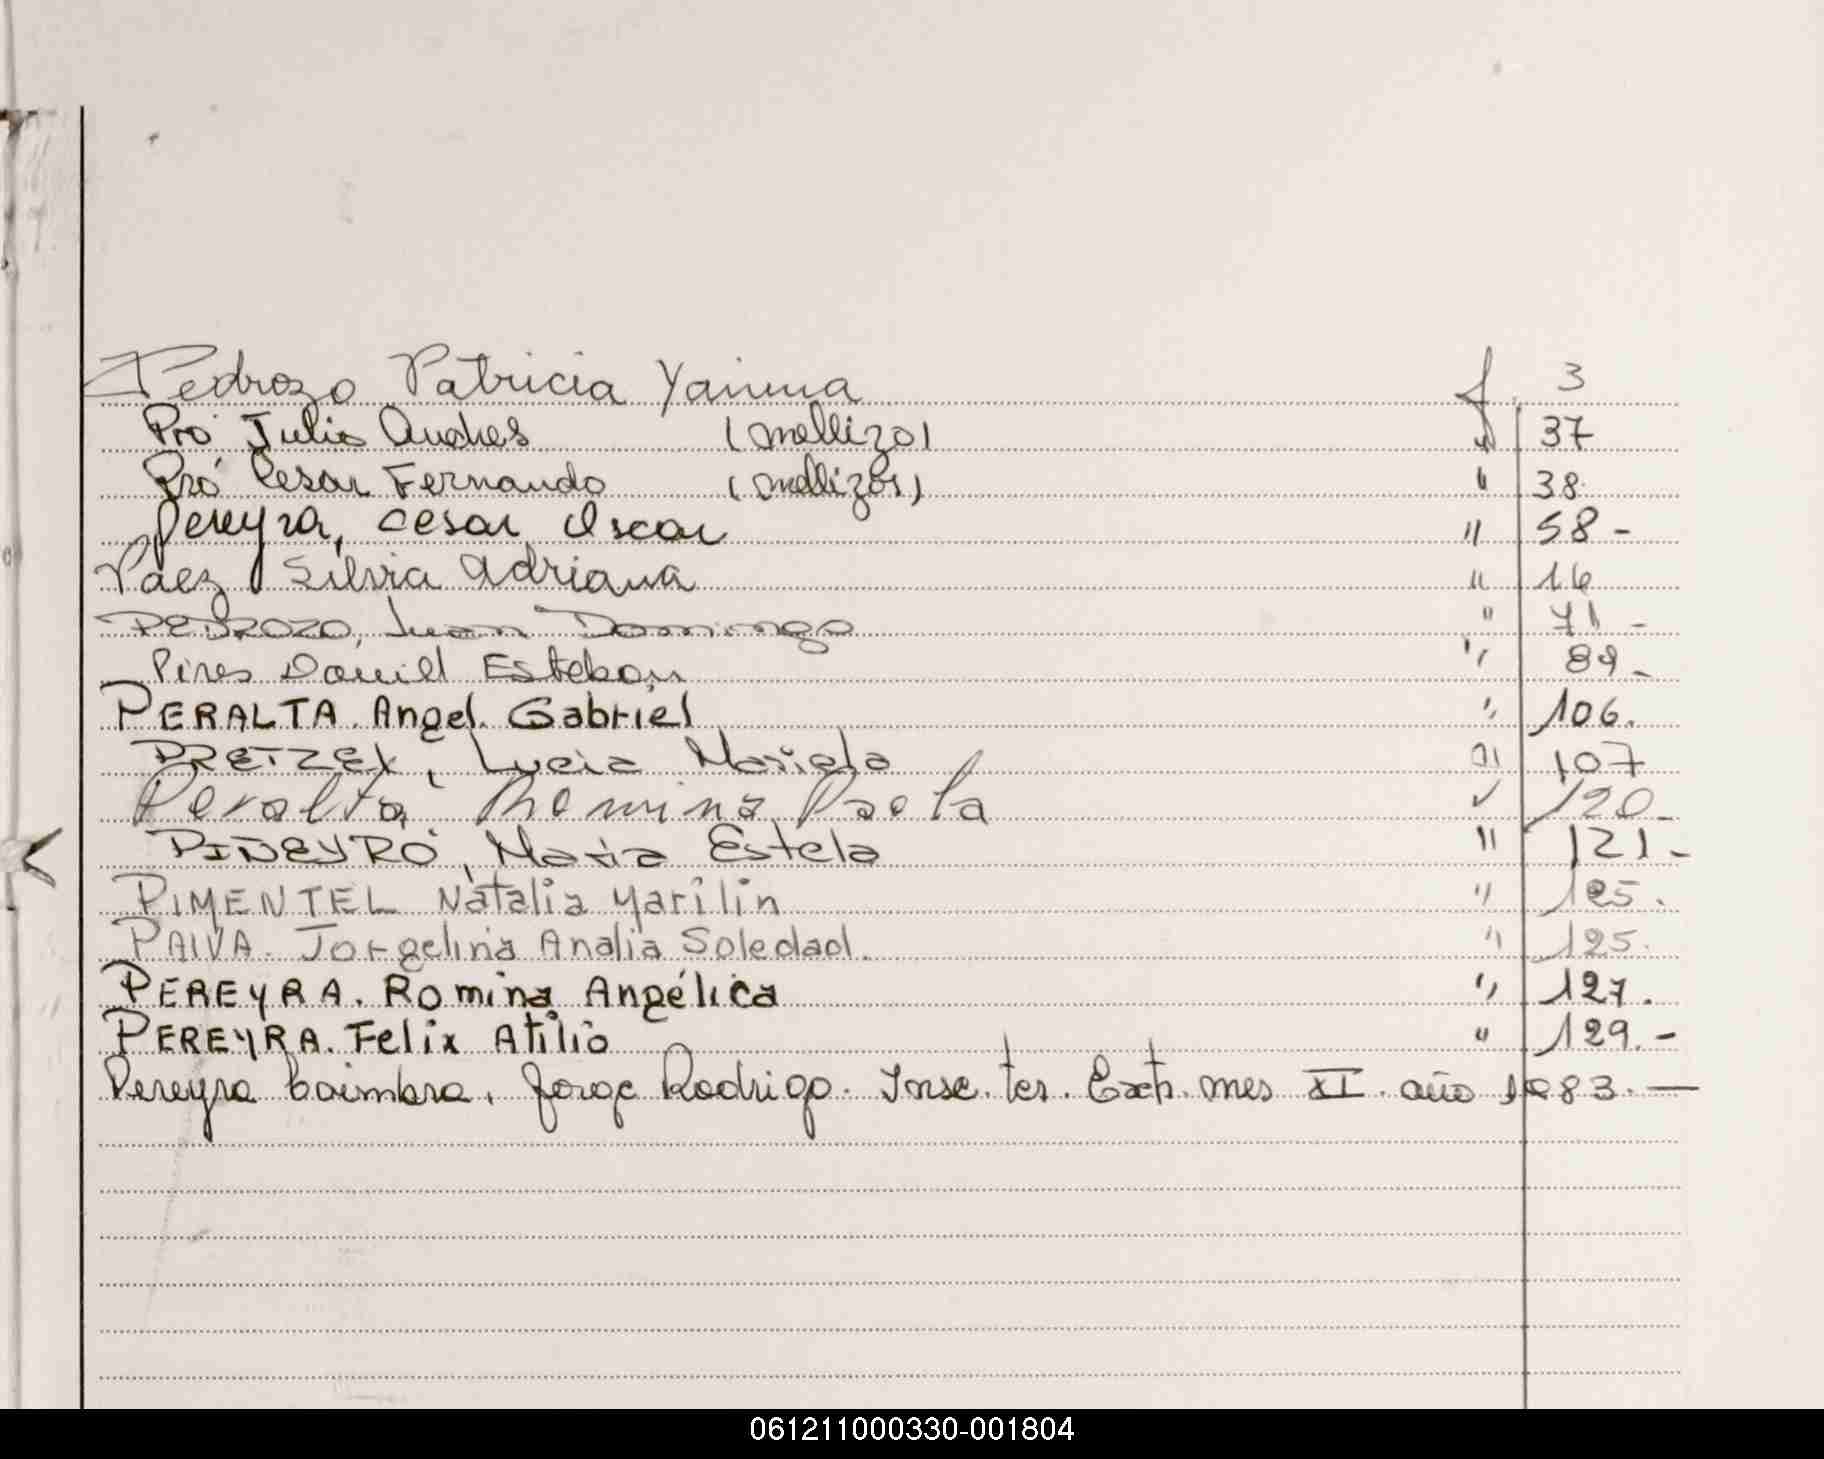 Pedrozo Patricia Yanina f. 3
Pró Julio Andres (mellizo) " 37
Pró Cesar Fernando (mellizos) " 38
Pereyra, Cesar Oscar " 58 -
Paez Silvia Adriana " 16
PEDROZO, Juan Domingo " 71 -
Pires Daniel Esteban " 89 -
PERALTA. Angel. Gabriel " 106.
PRETZEL, Lucia Mariela " 107
Peralta Romina Paola " 120 -
PIÑEYRÓ, Maria Estela " 121 -
PIMENTEL Natalia Marilin " 125.
PAIVA. Jorgelina Analia Soledad. " 125.
PEREYRA. Romina Angélica " 127.
PEREYRA. Felix Atilio " 129. -
Pereyra Coimbra, Jorge Rodrigo. Insc. ter. Extr. mes XI. año 1983. —
061211000330-001804